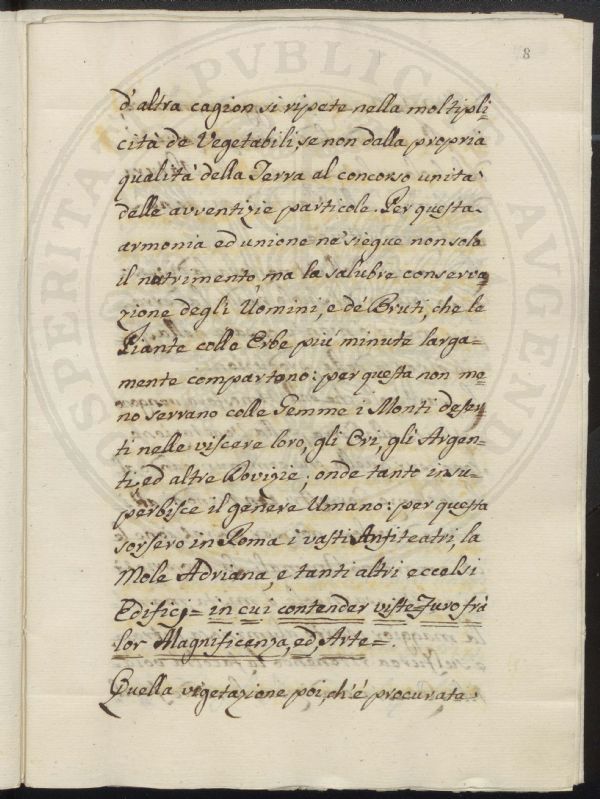 8
d'altra cagion si ripete nella moltipli-
cità de Vegetabili, se non dalla propria
qualità della Terra al concorso unita
delle avventizie particole. Per questa
armonia ed unione ne siegue non solo
il nutrimento, ma la salubre conserva-
zione degli Uomini, e de' Bruti, che le
Piante colle Erbe più minute larga-
mente compartono: per questa non me-
no serrano colle Gemme i Monti deser-
ti nelle viscere loro, gli Ori, gli Argen-
ti, ed altre Dovizie; onde tanto insu-
perbisce il genere Umano: per questa
sorsero in Roma i vasti Anfiteatri, la
Mole Adriana, e tanti altri eccelsi
Edificj,= in cui contender viste furo frà
lor Magnificenza, ed, Arte=.
Quella vigetazione poi, ch'è procurata